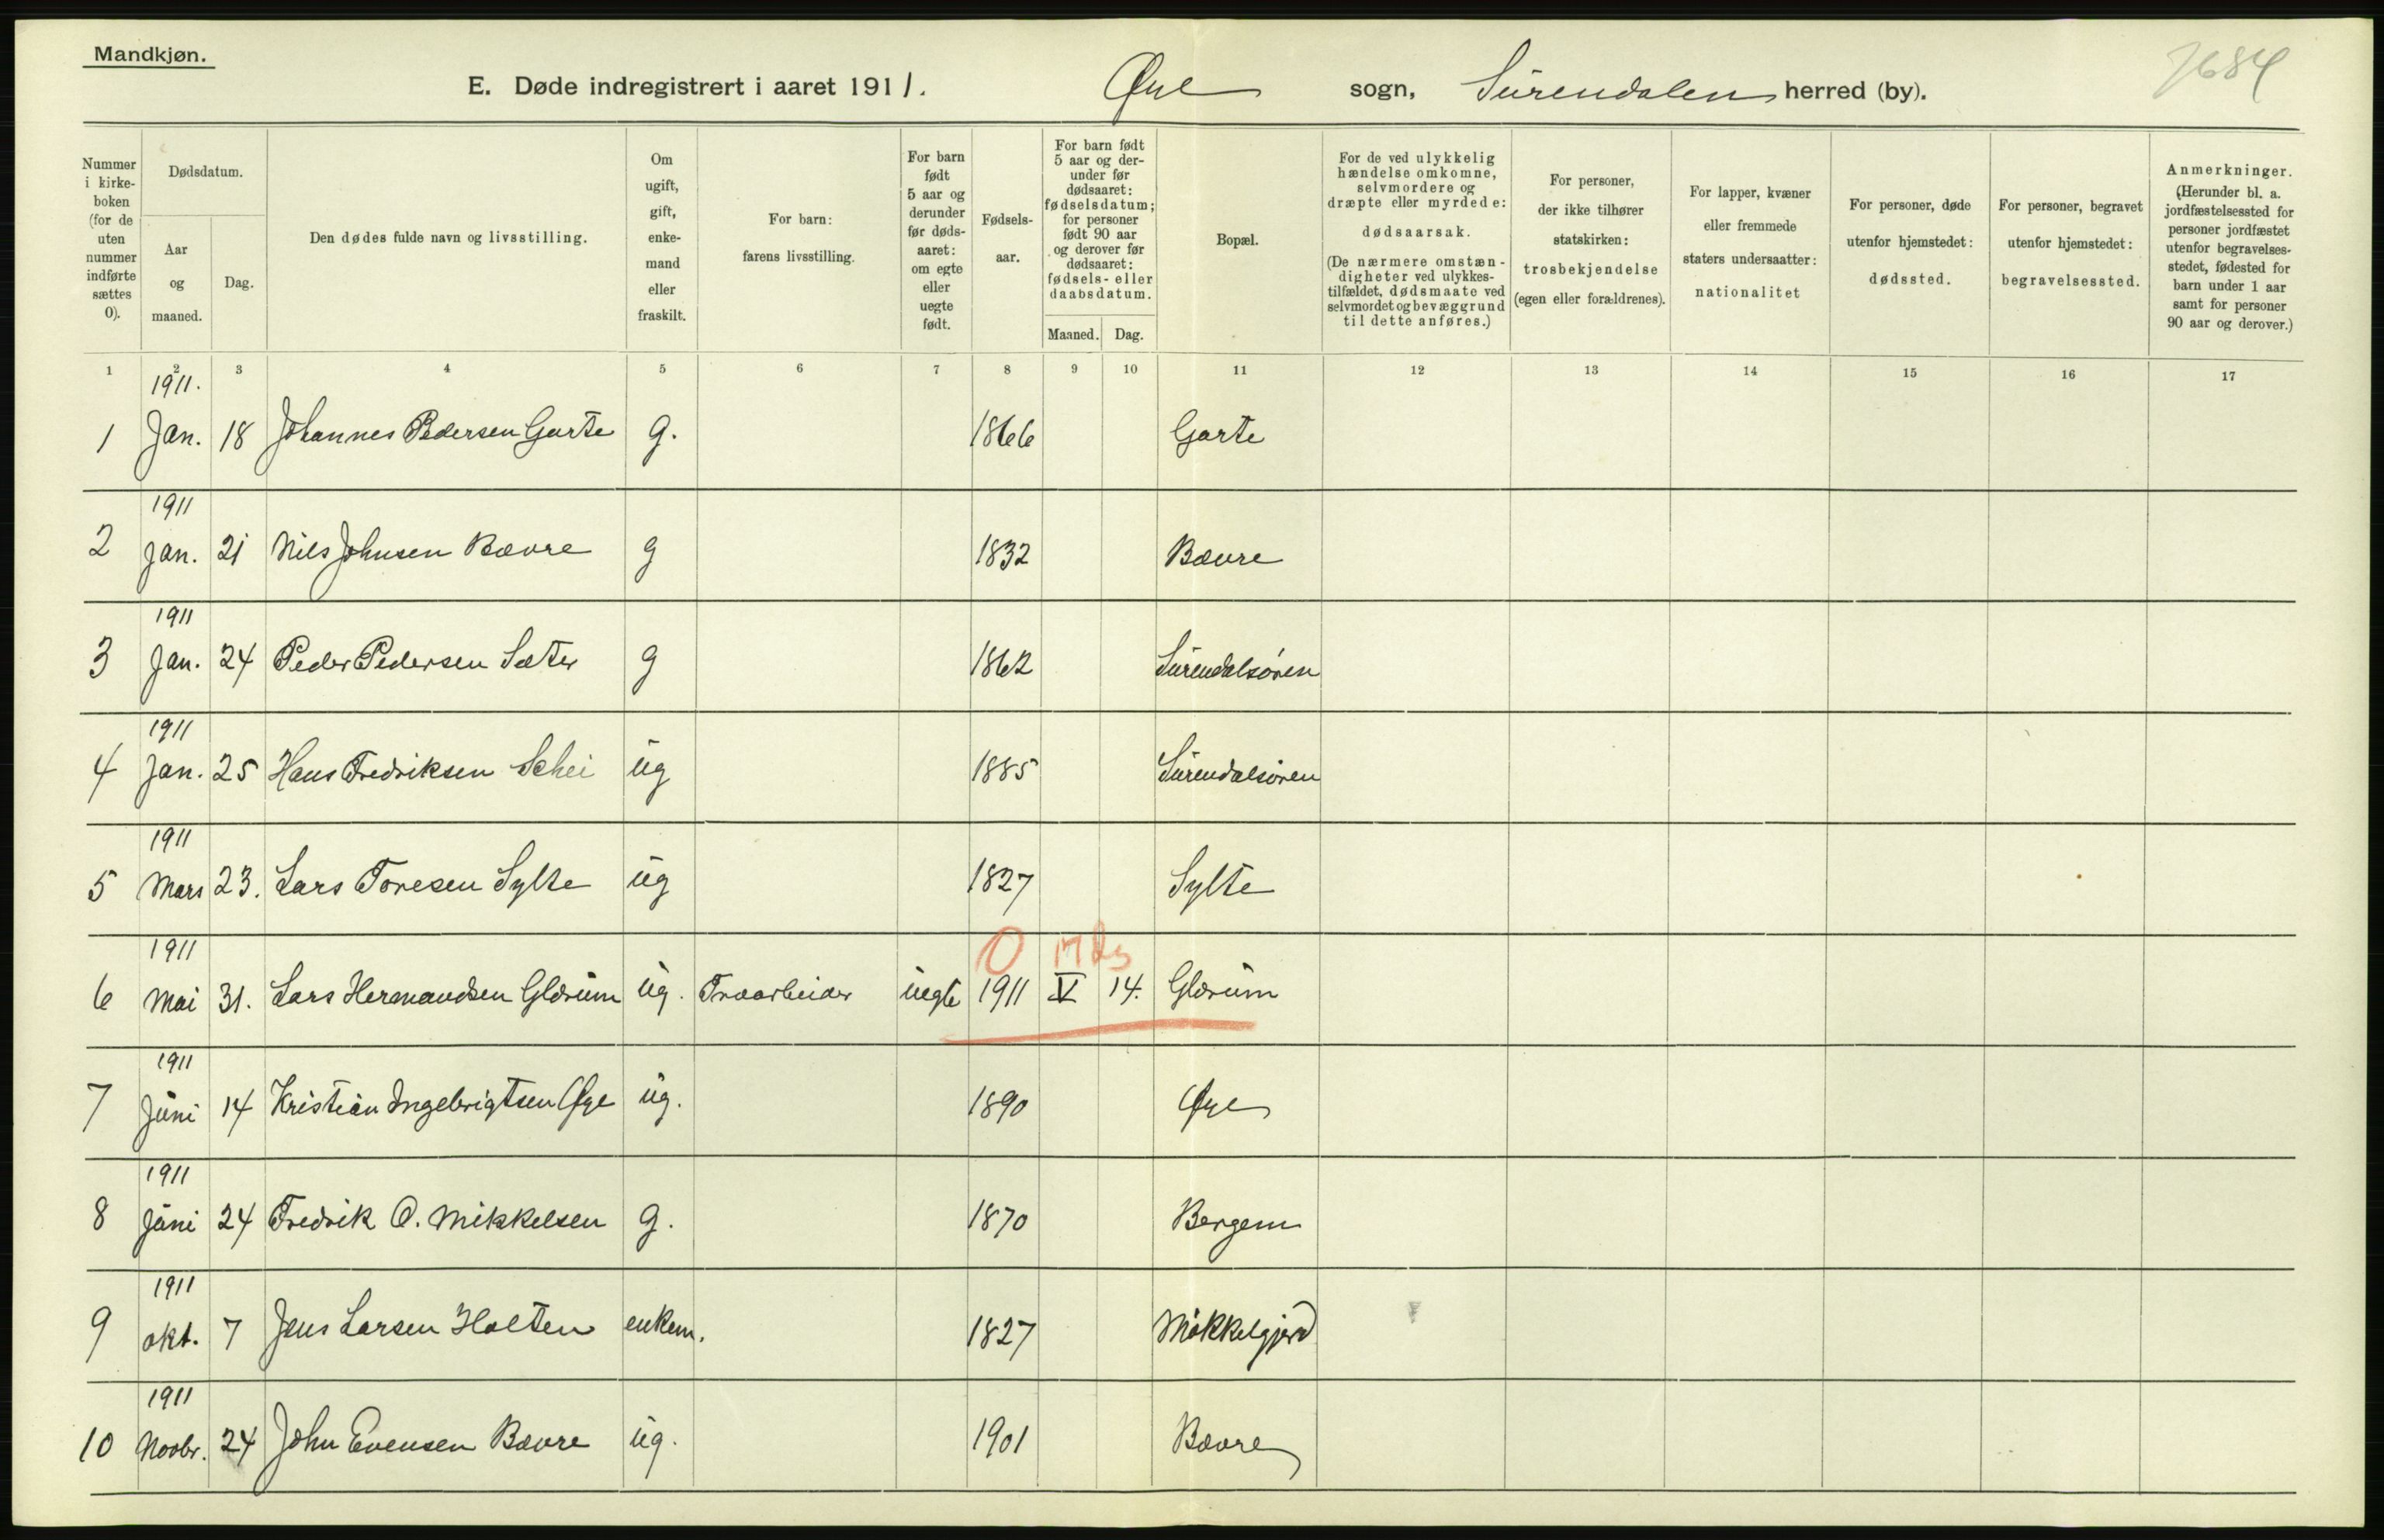 Mandkjøn.
E. Døde indregistrert i aaret 1911. Øye sogn, Surendalen herred (by).
7684
Nummer i kirkeboken (for de uten nummer indførte sættes 0).
Dødsdatum.
Aar og maaned.
Dag.
Den dødes fulde navn og livsstilling.
Om ugift, gift, enkemand eller fraskilt.
For barn: farens livsstilling.
For barn født 5 aar og derunder før dødsaaret: om egte eller uegte født.
Fødselsaar.
For barn født 5 aar og derunder før dødsaaret: fødselsdatum; for personer født 90 aar og derover før dødsaaret: fødsels- eller daabsdatum.
Maaned. Dag.
Bopæl.
For de ved ulykkelig hændelse omkomne, selvmordere og dræpte eller myrdede: dødsaarsak. (De nærmere omstændigheter ved ulykkestilfældet, dødsmaate ved selvmordet og bevæggrund til dette anføres.)
For personer, der ikke tilhører statskirken: trosbekjendelse (egen eller forældrenes).
For lapper, kvæner eller fremmede staters undersaatter: nationalitet
For personer, døde utenfor hjemstedet: dødssted.
For personer, begravet utenfor hjemstedet: begravelsessted.
Anmerkninger. (Herunder bl. a. jordfæstelsessted for personer jordfæstet utenfor begravelsesstedet, fødested for barn under 1 aar samt for personer 90 aar og derover.)
1 2 3 4 5 6 7 8 9 10 11 12 13 14 15 16 17
1911.
1 Jan. 18 Johannes Pedersen Garte g. 1866 Garte
1911
2 Jan. 21 Nils Johnsen Bævre g 1832 Bævre
1911
3 Jan. 24 Peder Pedersen Sæter g 1862 Surendalsøren
1911
4 Jan. 25 Hans Fredriksen Schei ug 1885 Surendalsøren
1911
5 Mars 23. Lars Toresen Sylte ug 1827 Sylte
1911 0 17 ds
6 Mai 31. Lars Hermandsen Glærum ug. Træarbeider uegte 1911 V 14. Glærum
1911
7 Juni 14 Kristian Ingebrigtsen Øye ug. 1890 Øye
1911
8 Juni 24 Fredrik O. Mikkelsen g. 1870 Bergem
1911
9 okt. 7 Jens Larsen Holten enkem. 1827 Mökkelgjerd
1911
10 Novbr. 24 John Evensen Bævre ug. 1901 Bævre